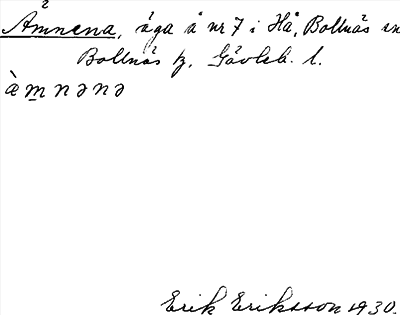 Ämnena, äga å nr 7 i Hå, Bollnäs sn
Bollnäs tg, Gävleb. l.
àm̲nənə
Erik Eriksson 1930.